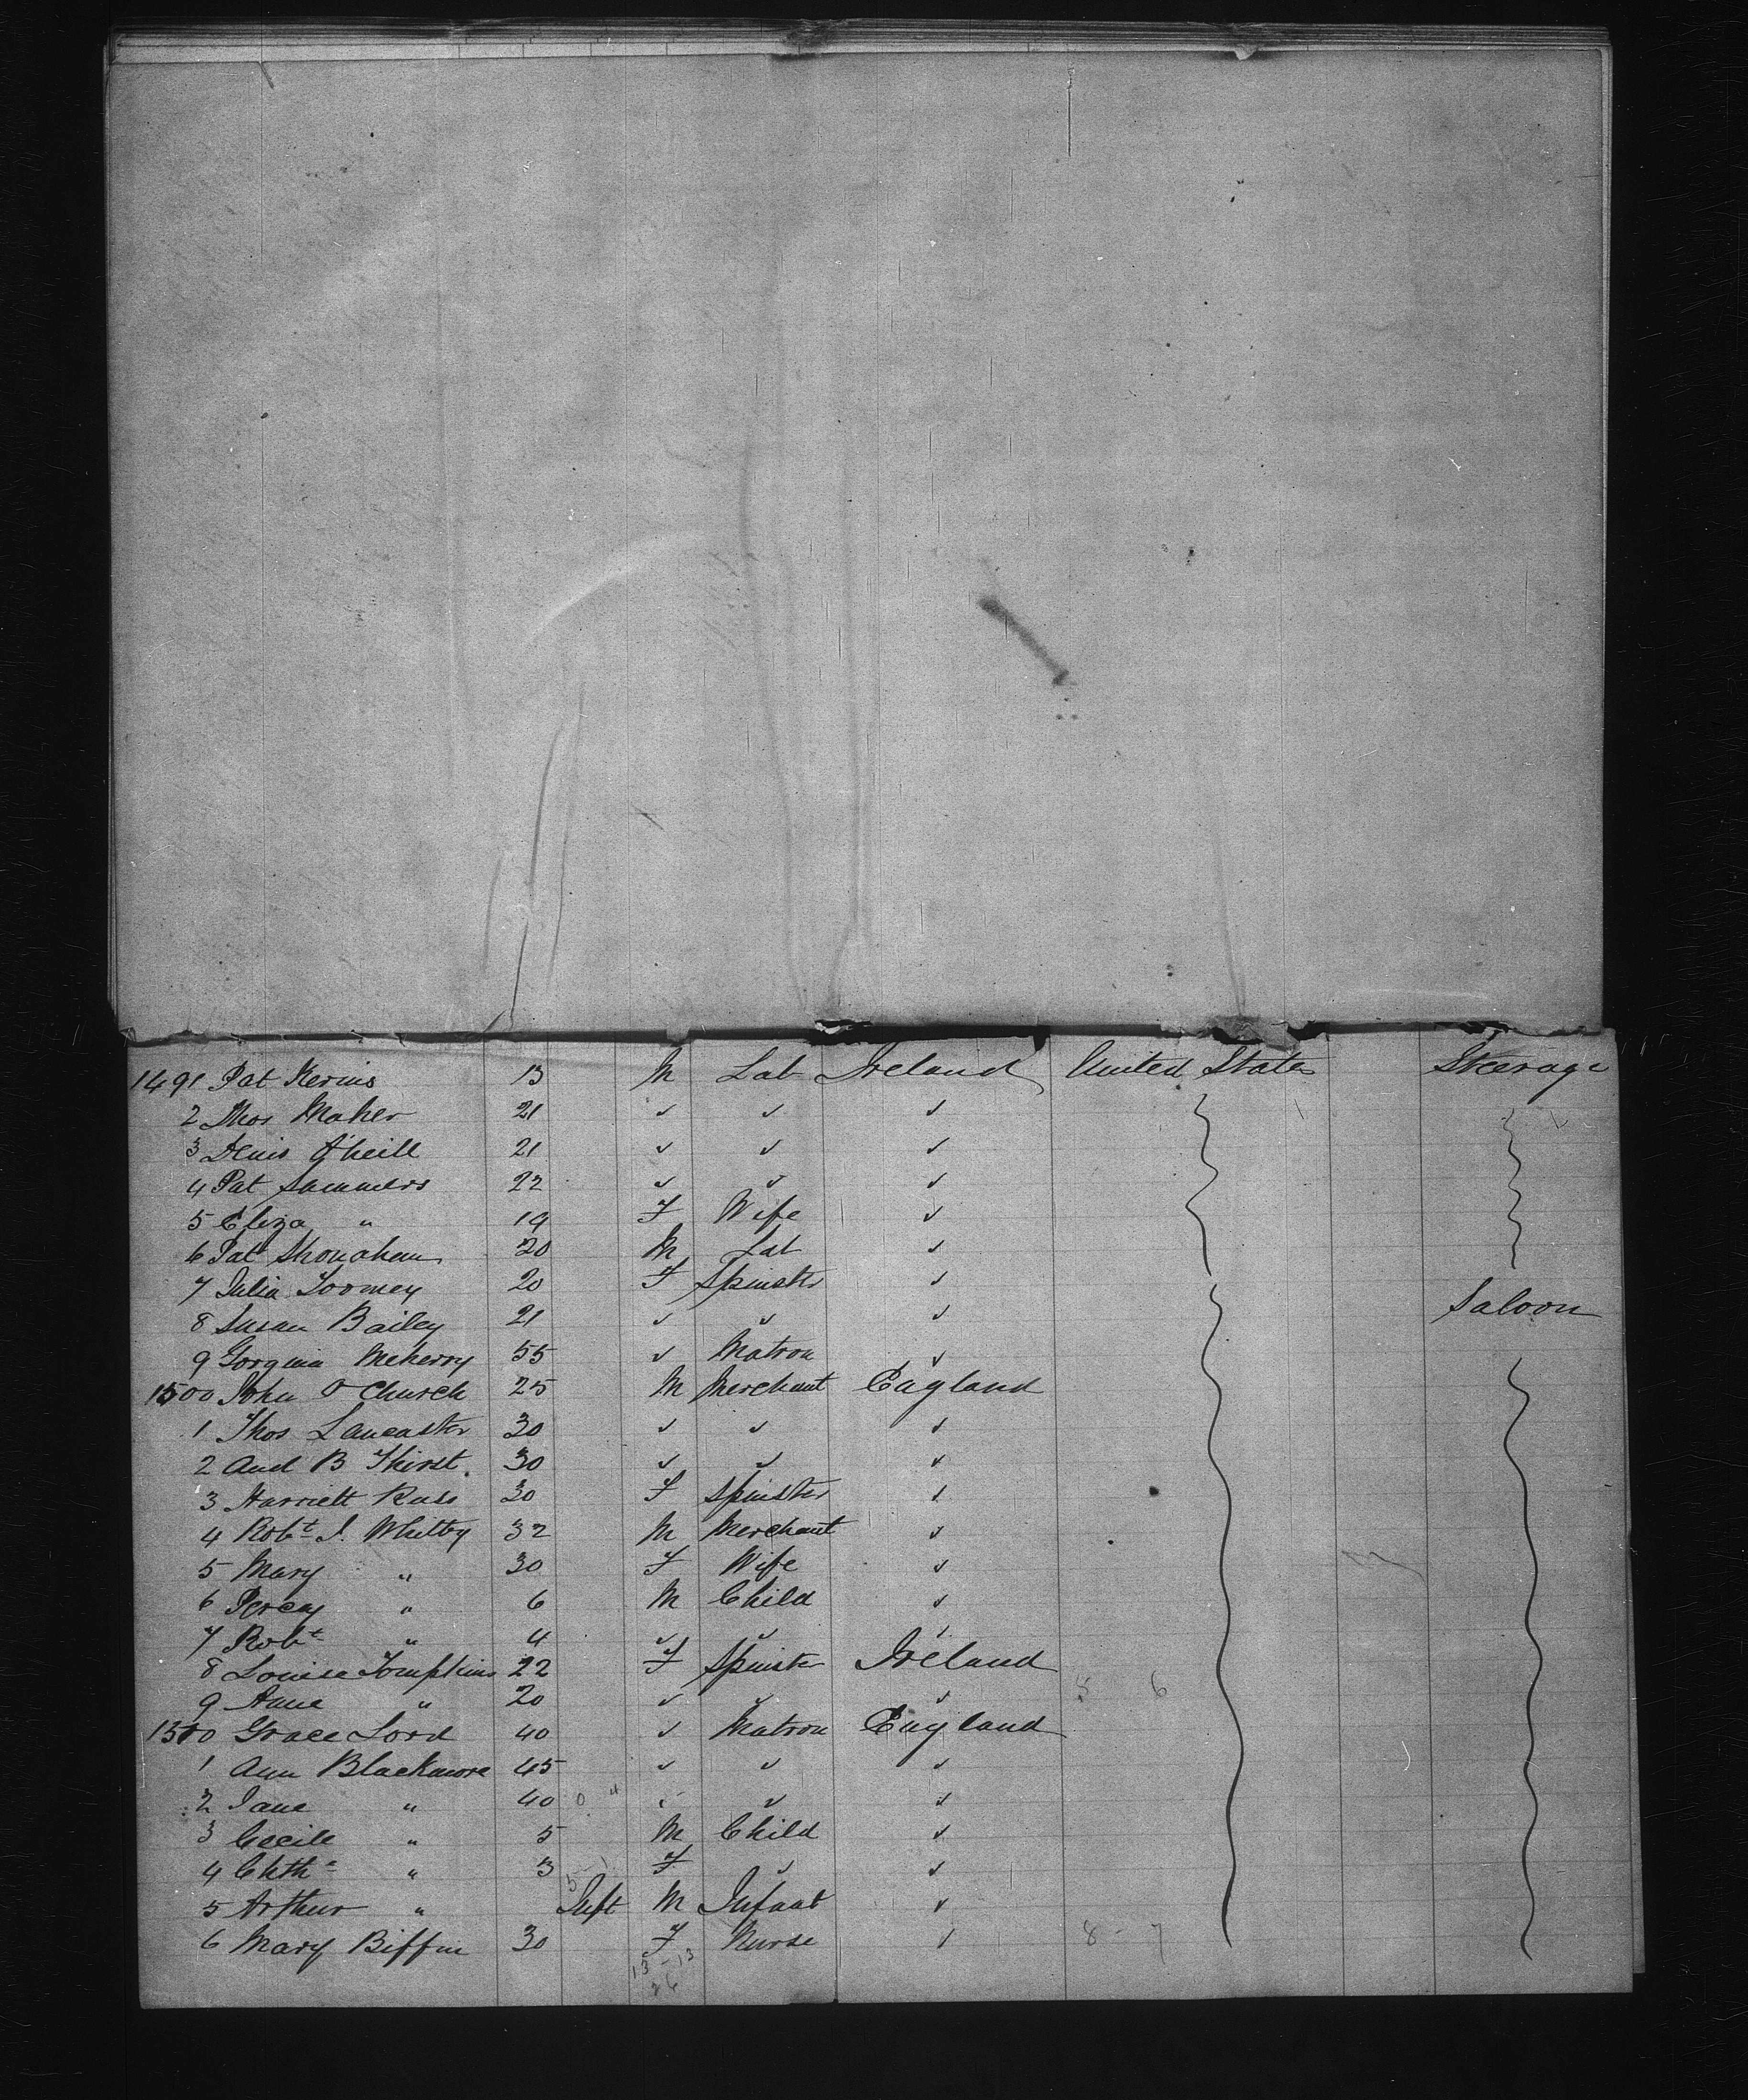 1491 Pat Kerins 13 M Lab Ireland United States Steerage
2 Thos Maher 21 " " "
3 Denis O'Neill 21 " " "
4 Pat Summers 22 " " "
5 Eliza " 19 F Wife "
6 Pat Shonahan 20 M Lab "
7 Julia Toomey 20 F Spinster "
8 Susan Bailey 21 " " " Saloon
9 Gorginia Meherry 55 " Matron "
1500 John O Church 25 M Merchant England
1 Thos Lancaster 30 " " "
2 And B Thirst 30 " " "
3 Harriett Russ 30 F Spinster "
4 Robt J. Whitby 32 M Merchant "
5 Mary " 30 F Wife "
6 Percy " 6 M Child "
7 Robt " 4 " " "
8 Louise Tompkins 22 F Spinster Ireland
9 Anne " 20 " " " 8 6
1510 Grace Lord 40 " Matron England
1 Ann Blackmore 45 " " "
2 Jane " 40 " " "
3 Cecile " 5 M Child "
4 " 3 F " "
5 Arthur " Inft M Infant "
6 Mary Biffin 30 F Nurse " 8 - 7
13 - 13
26